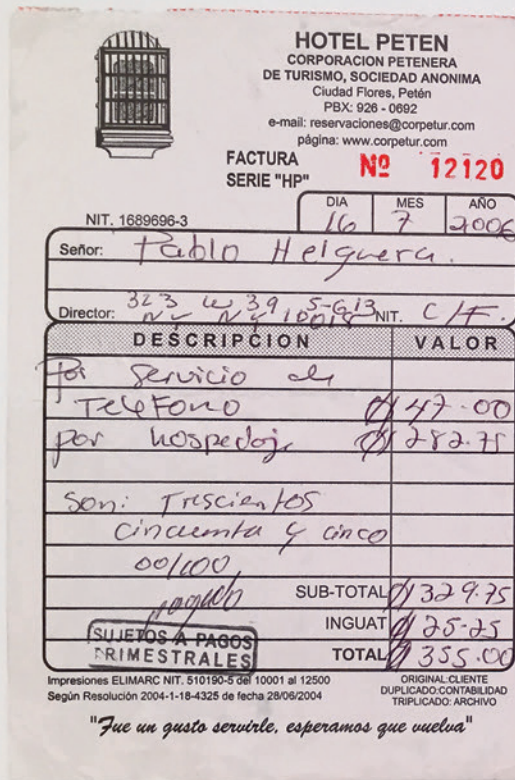 HOTEL PETEN
CORPORACION PETENERA
DE TURISMO, SOCIEDAD ANONIMA
Ciudad Flores, Petén
PBX: 926 - 0692
e-mail: reservaciones@corpetur.com
página: www.corpetur.com
FACTURA
SERIE "HP"
Nº 12120
DIA MES AÑO
NIT. 1689696-3 16 7 2006
Señor: Pablo Helguera.
Director: 323 W 39 NY NY 10018 NIT. C/F.
DESCRIPCION VALOR
Por Servicio de
TeleFono Q 47.00
por hospedaje Q 282.75
Son: Trescientos
cincuenta y cinco
00/100
pagado
SUB-TOTAL Q 329.75
INGUAT Q 25.25
SUJETOS A PAGOS
TRIMESTRALES
TOTAL Q 355.00
Impresiones ELIMARC NIT. 510190-5 del 10001 al 12500
Según Resolución 2004-1-18-4325 de fecha 28/06/2004
ORIGINAL:CLIENTE
DUPLICADO:CONTABILIDAD
TRIPLICADO: ARCHIVO
"Fue un gusto servirle, esperamos que vuelva"